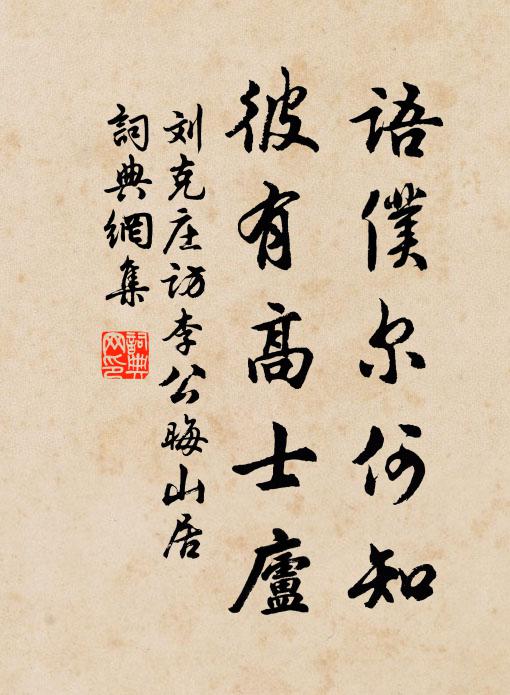 語僕尔何知
彼有高士廬
刘克庄访李公晦山居
詞典網集
詞典
网印